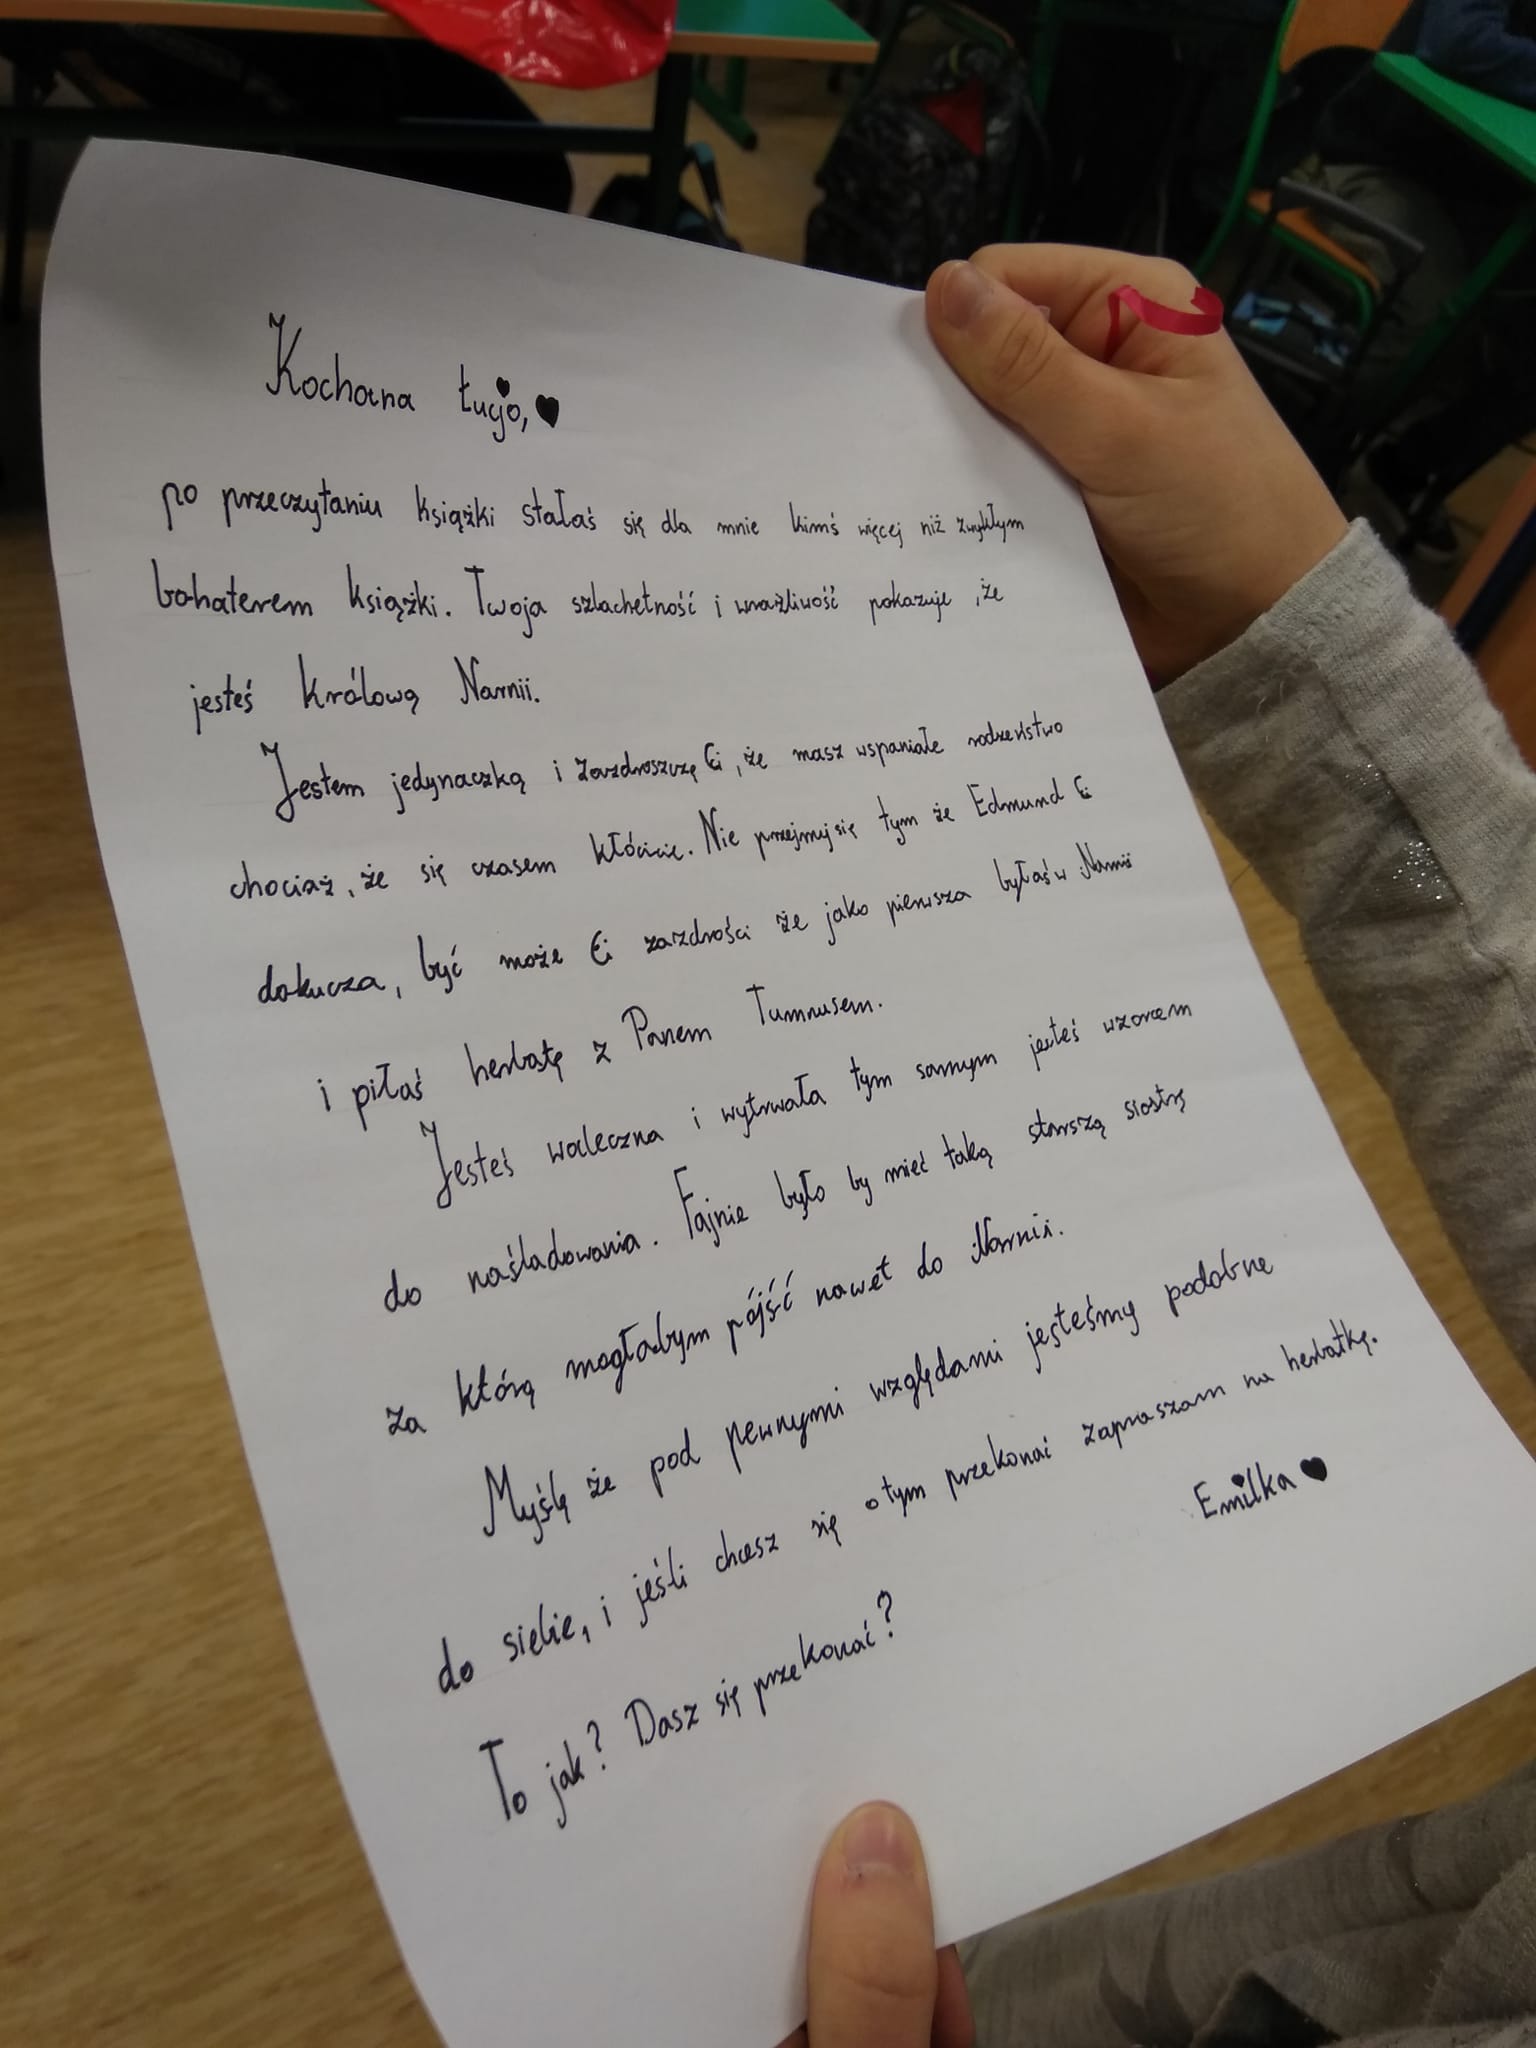 Kochana Łucjo,
po przeczytaniu książki stałaś się dla mnie kimś więcej niż zwykłym
bohaterem książki. Twoja szlachetność i wrażliwość pokazuje, że
jesteś Królową Narnii.
Jestem jedynaczką i zazdroszczę Ci, że masz wspaniałe rodzeństwo
chociaż, że się czasem kłócicie. Nie przejmuj się tym że Edmund Ci
dokucza, być może Ci zazdrości że jako pierwsza byłaś w Narnii
i piłaś herbatę z Panem Tumnusem.
Jesteś waleczna i wytrwała tym samym jesteś wzorcem
do naśladowania. Fajnie było by mieć taką starszą siostrę
za którą mogłabym pójść nawet do Narnii.
Myślę że pod pewnymi względami jesteśmy podobne
do siebie, i jeśli chcesz się o tym przekonać zapraszam na herbatkę.
To jak? Dasz się przekonać?
Emilka